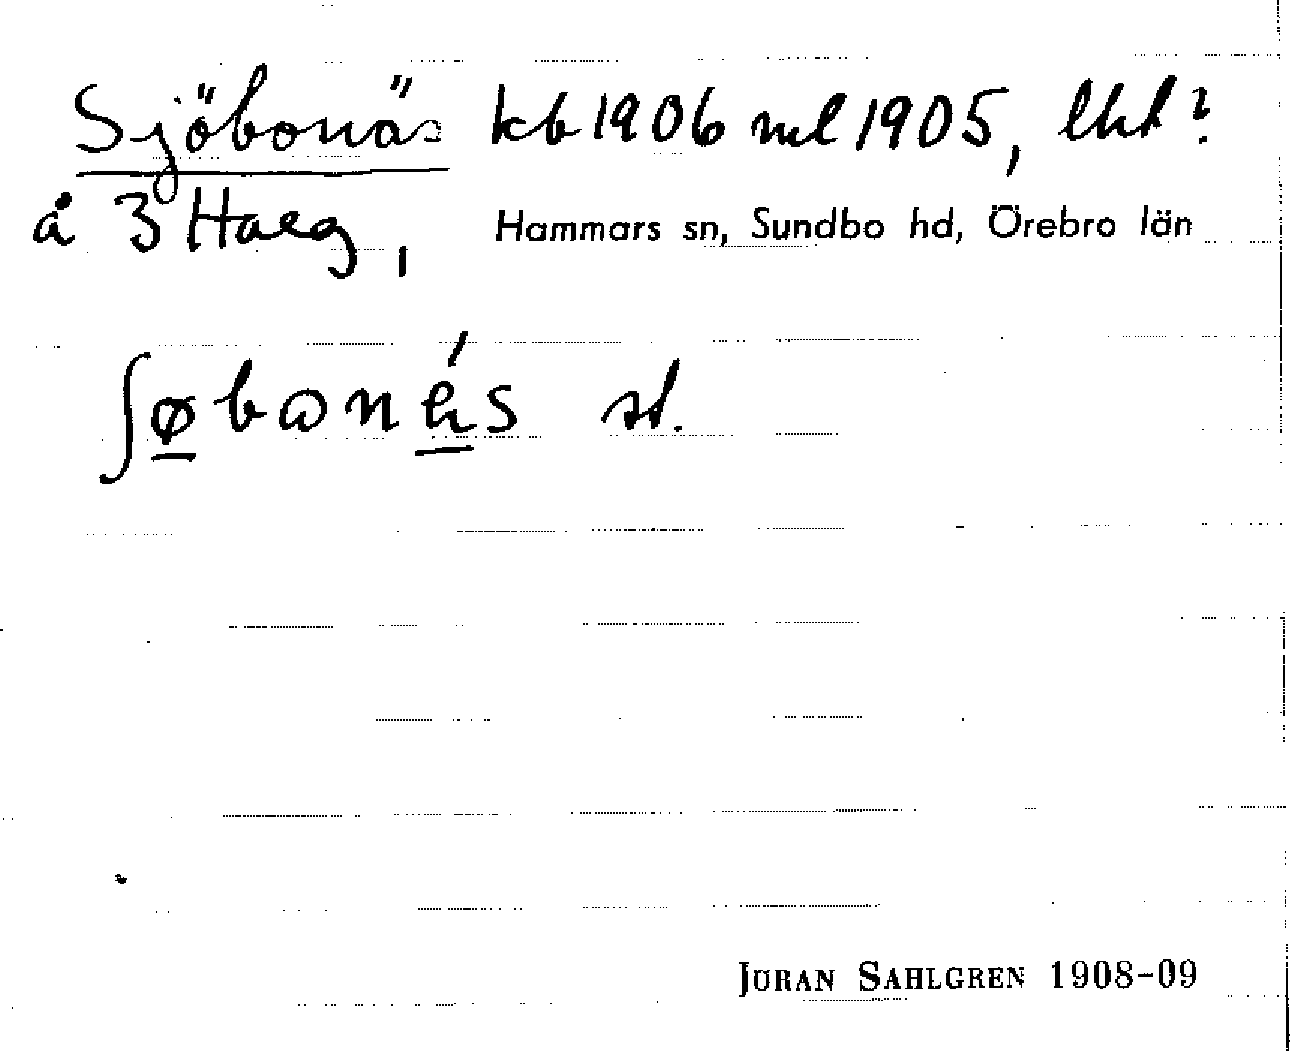 Sjöbonäs kb 1906 ml 1905, lht?
å 3 Harg, Hammars sn, Sundbo hd, Örebro län
ʃøbonés st.
JÖRAN SAHLGREN 1908-09